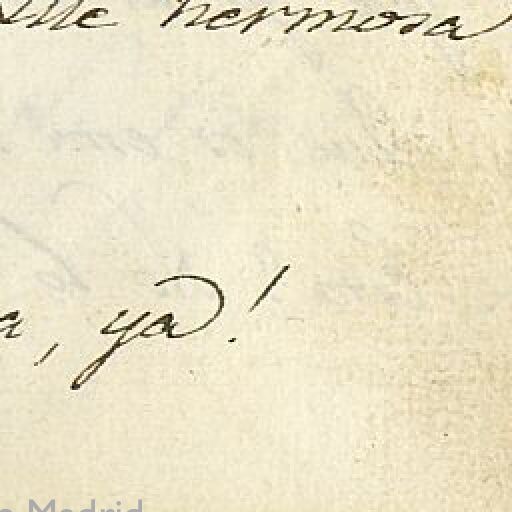 hermosa
a, ya!
Madrid